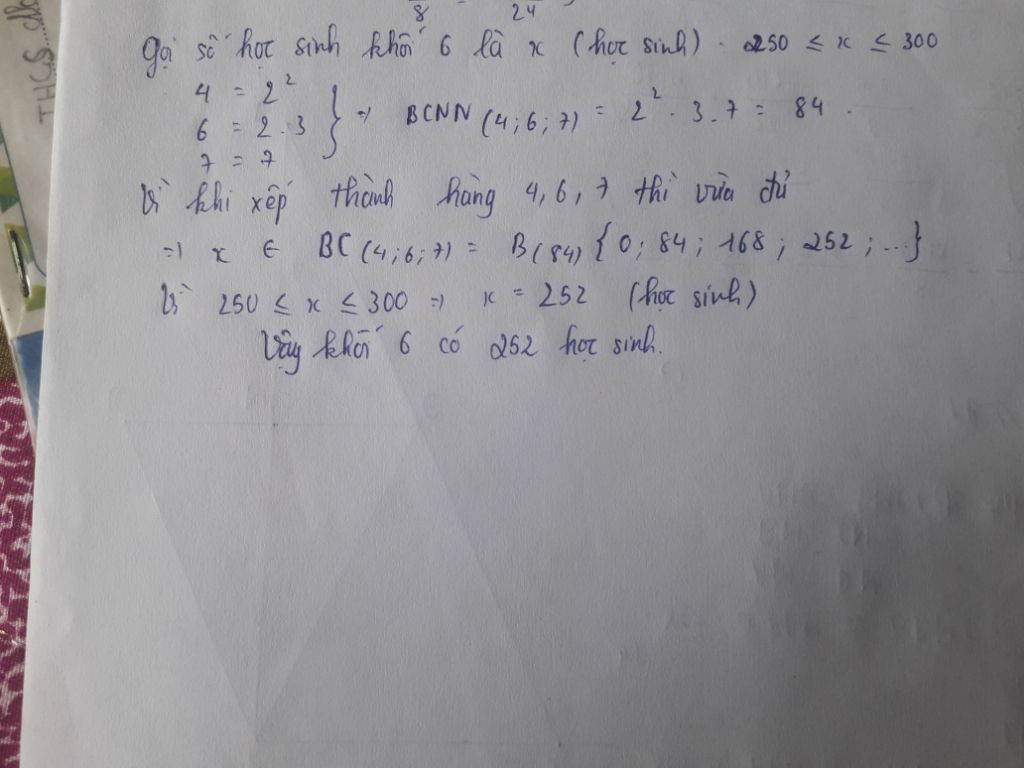 8 24
Gọi số học sinh khối 6 là x (học sinh). 250 ≤ x ≤ 300
4 = 2²
6 = 2.3 } => BCNN (4;6;7) = 2².3.7 = 84.
7 = 7
Vì khi xếp thành hàng 4, 6, 7 thì vừa đủ
=> x ∈ BC (4;6;7) = B(84) {0; 84; 168; 252; ...}
Vì 250 ≤ x ≤ 300 => x = 252 (học sinh)
Vậy khối 6 có 252 học sinh.
THCS